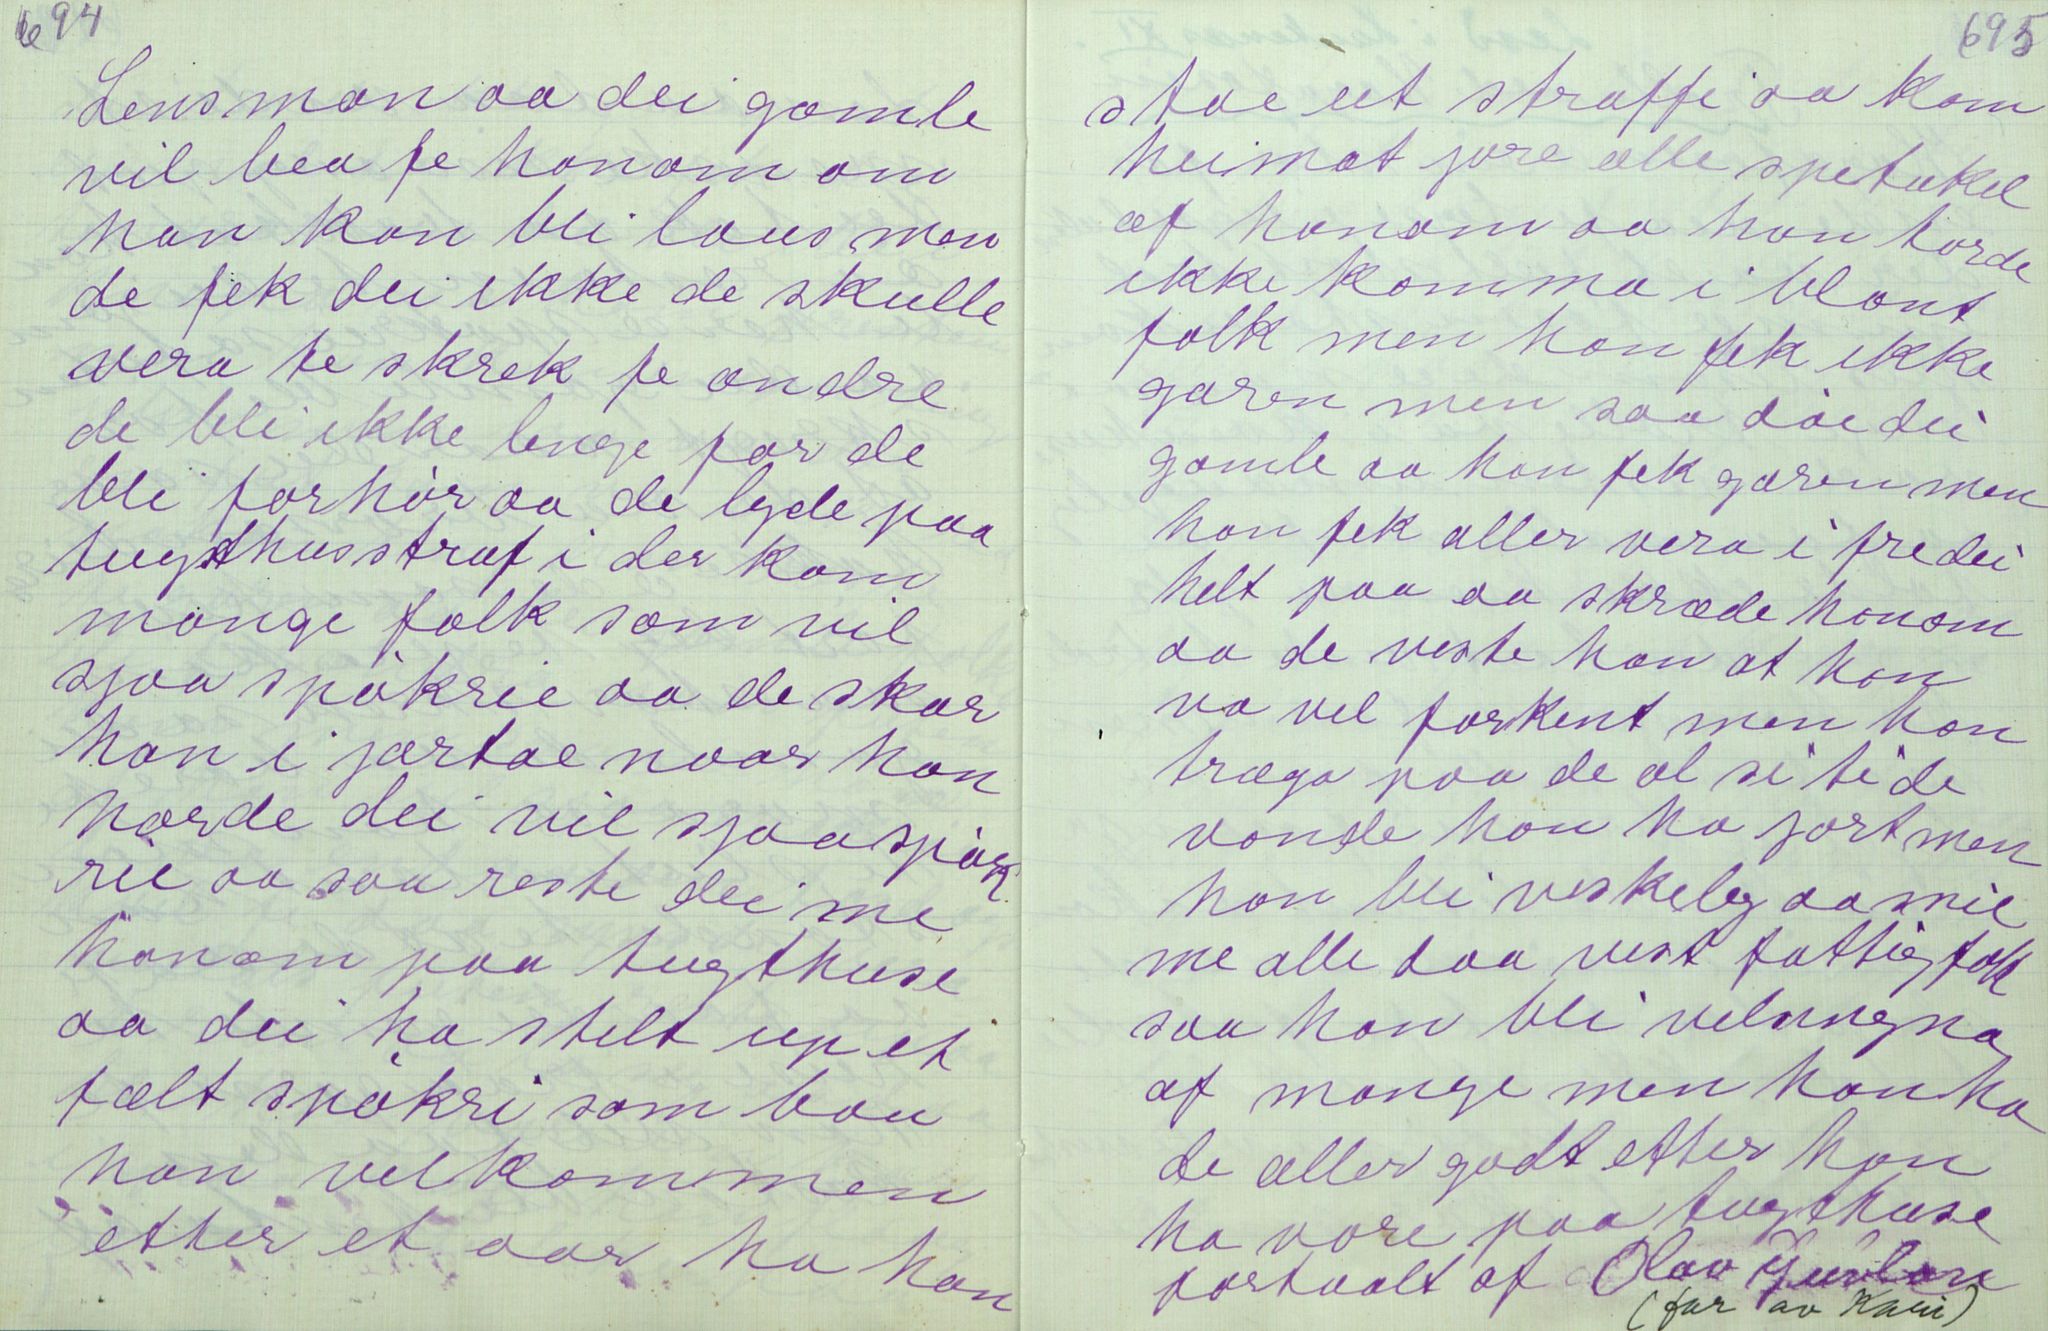 694
Lensman aa dei gamle
vil bea fe honom om
han kan bli laus men
de fek dei ikke de skulle
vera te skrek fe andre
de blei ikke lenge for de
blei forhør aa de lyde paa
tugthusstraf i der kom
mange folk som vil
sjaa spøkrie aa de skar
han i jærtae naar han
hørde dei vil sjaa spøk
rie aa saa reste dei me
honom paa tugthuse
aa dei ha stelt up et
fælt spøkri som bau
han velkommen
etter et aar ha han
695
stae ut straffi aa kom
heimat jore alle spetakel
af honom aa han torde
ikke komma i blant
folk men han fek ikke
garen men saa døe dei
gamle aa han fek garen men
han fek aller vera i fre dei
helt paa aa skræde honom
aa de veste han at han
va vel forkent men han
træga paa de al si ti de
vonde han ha jort men
han blei veskeleg aa mil
me alle daa vest fattig folk
saa han blei velsingna
af mange men han ha
de aller godt etter han
ha vore paa tugthuse
fortaalt af Olav
(far av Kari)